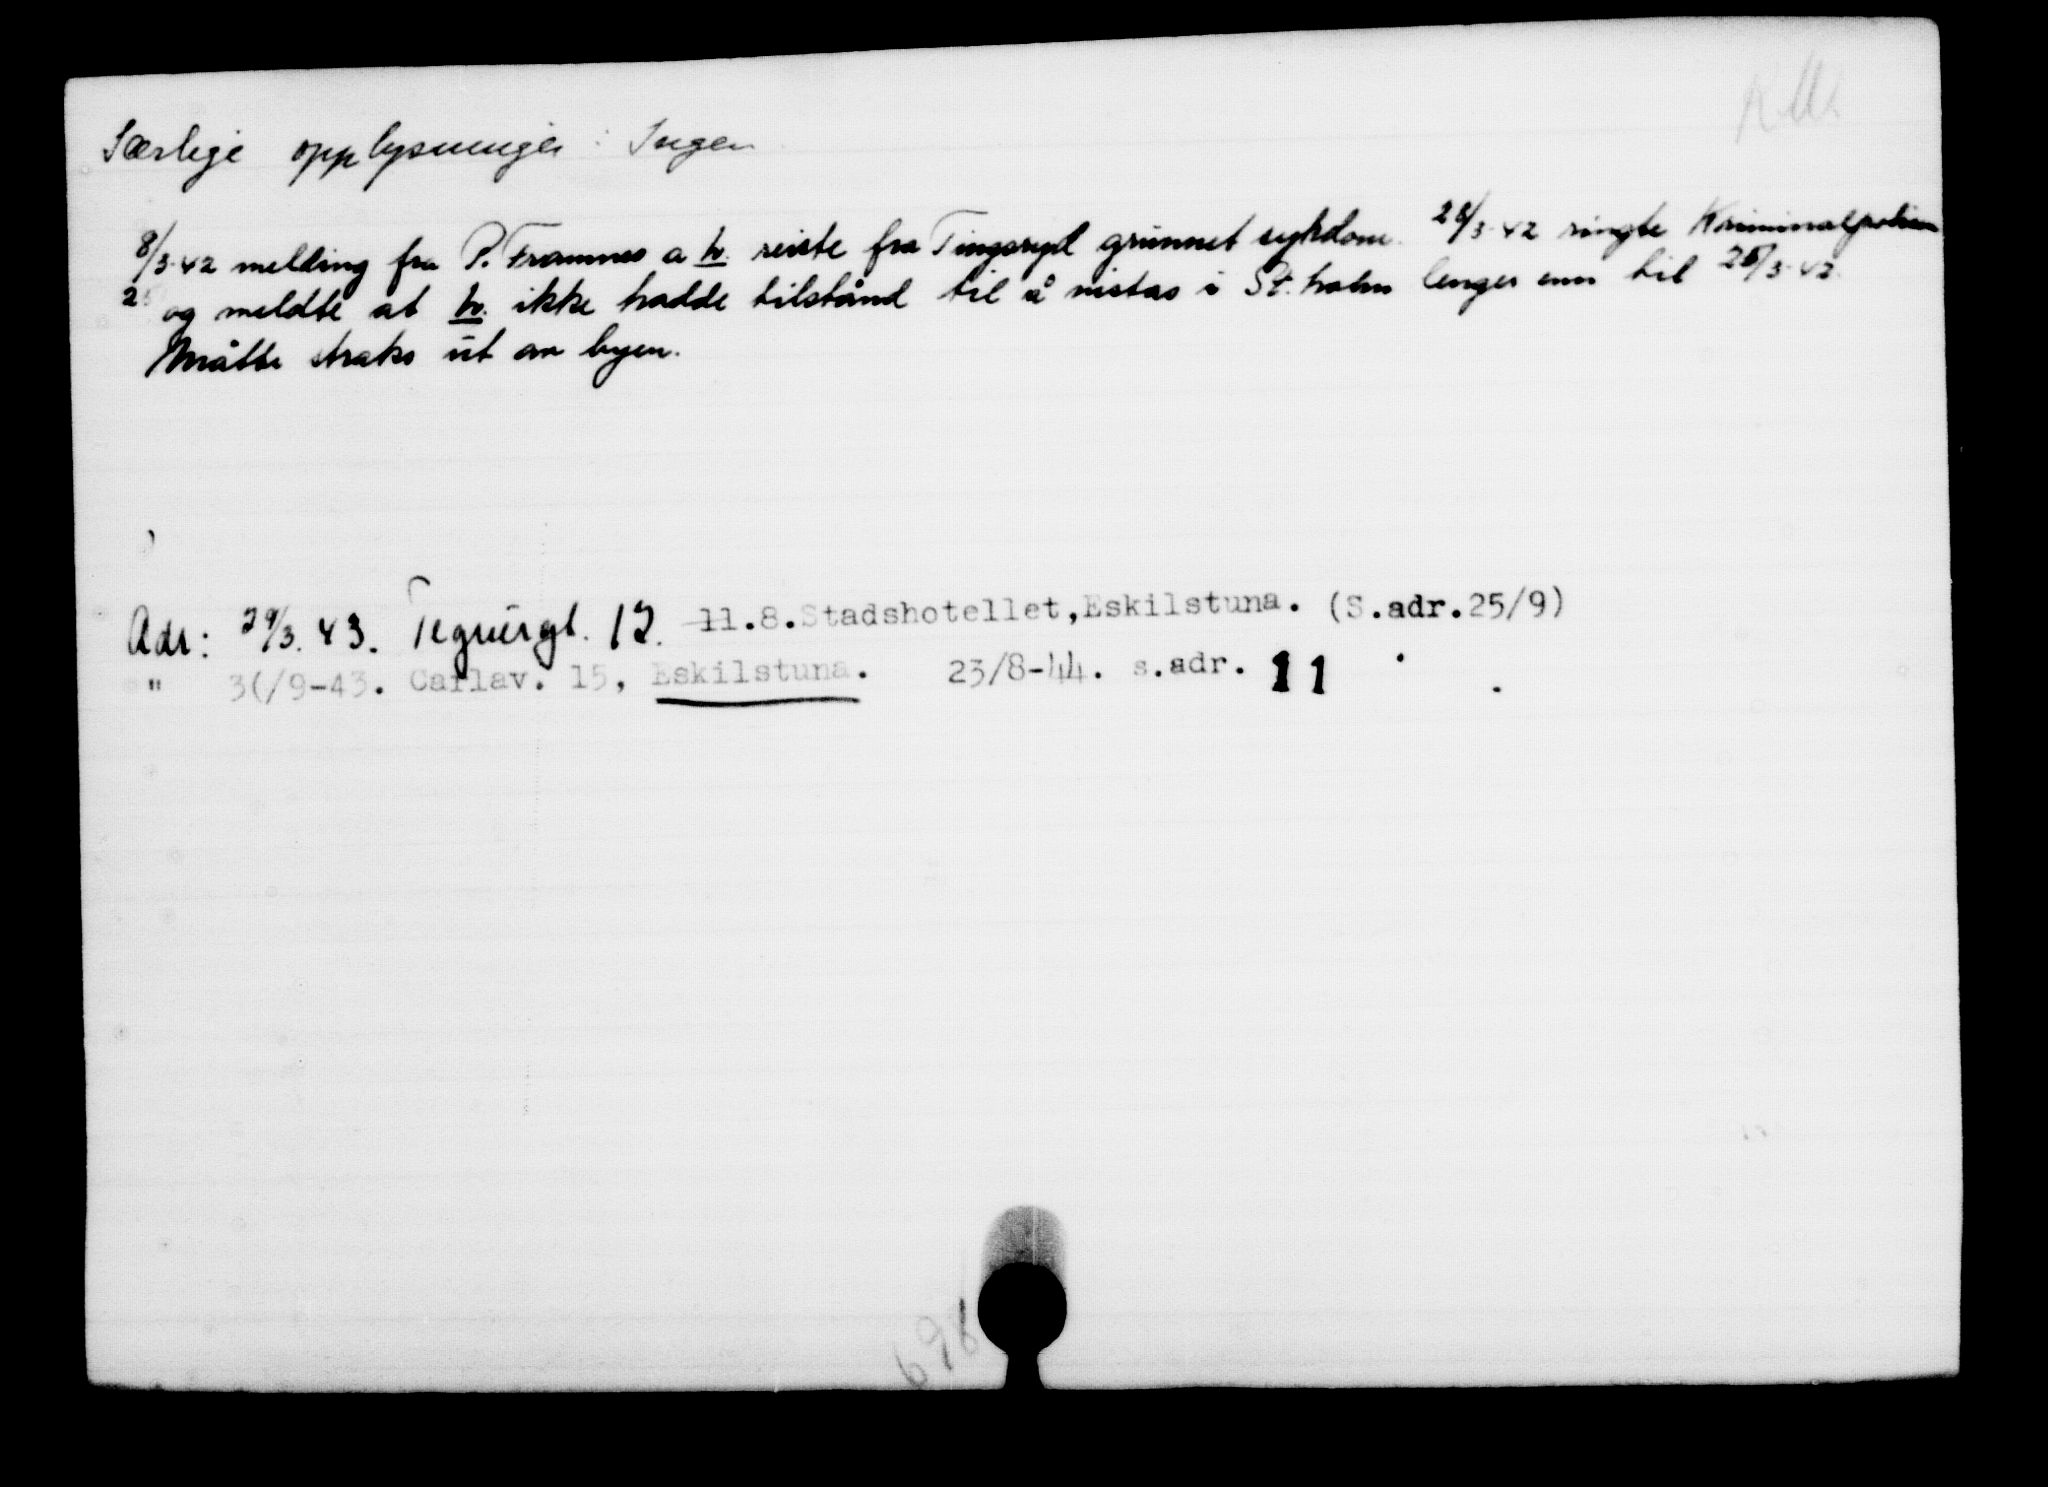 Særlige opplysninger : Ingen
8/3-42 melding fra P. Framnes a h. reiste fra Tingsryd grunnet sykdom. 28/3-42 ringte Kriminalpolisen
og meldte at h. ikke hadde tilstånd til å vistas i St.holm lenger enn til 25/3-42.
Måtte straks ut av byen.
Adr: 29/3.43. Tegnérgt. 12. 11.8.Stadshotellet,Eskilstuna. (S.adr.25/9)
" 30/9-43. Carlav. 15, Eskilstuna. 23/8-44. s.adr. 11
698